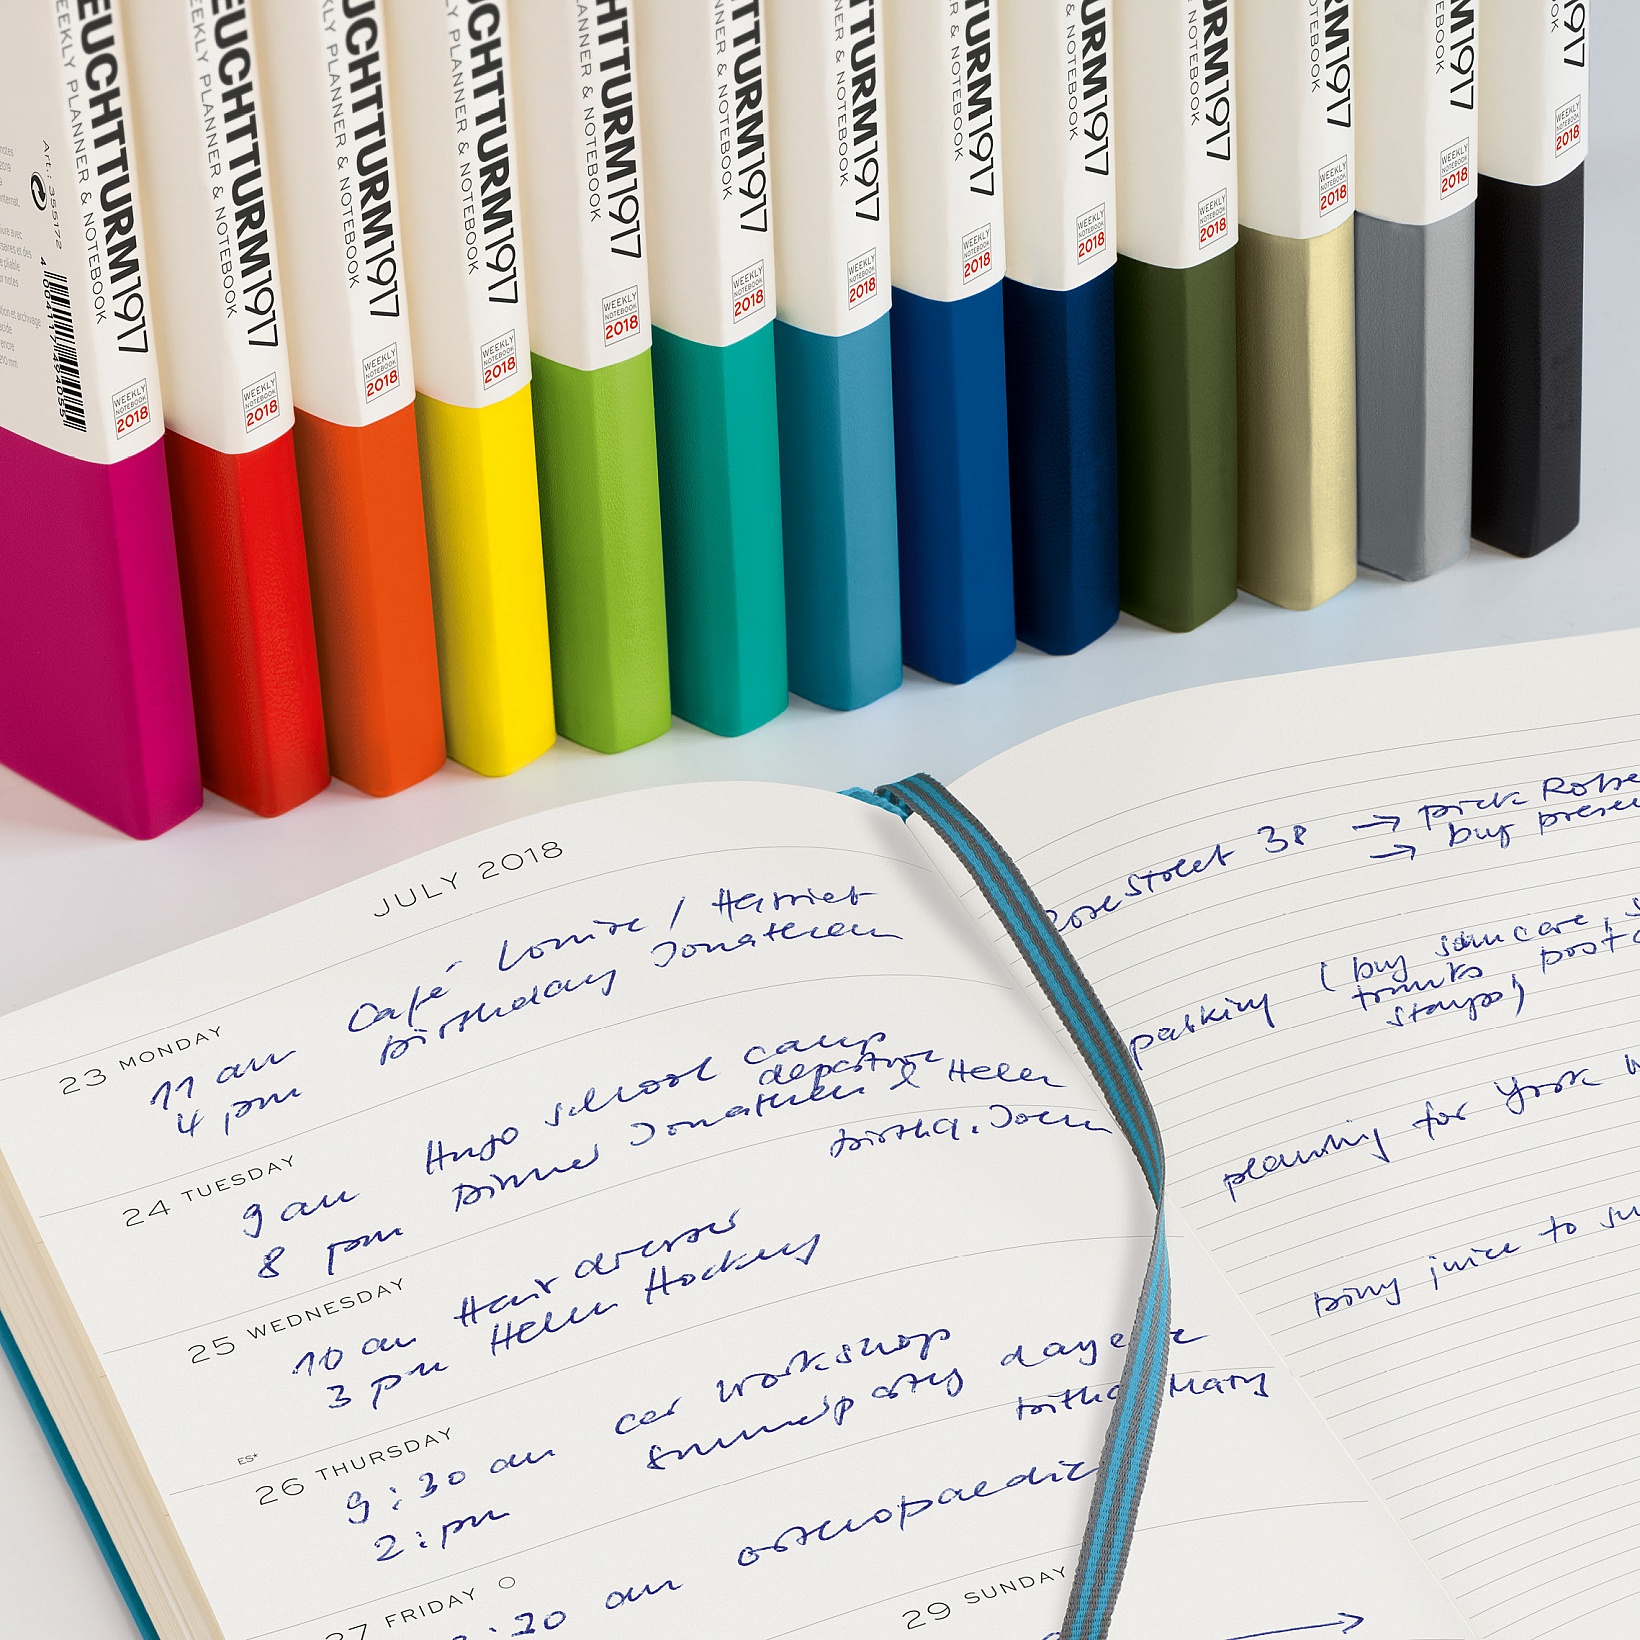 EUCHTTURM1917
EEKLY PLANNER & NOTEBOOK
WEEKLY NOTEBOOK 2018
Art.: 355172
EUCHTTURM1917
EEKLY PLANNER & NOTEBOOK
WEEKLY NOTEBOOK 2018
UCHTTURM1917
KLY PLANNER & NOTEBOOK
WEEKLY NOTEBOOK 2018
UCHTTURM1917
LY PLANNER & NOTEBOOK
WEEKLY NOTEBOOK 2018
HTTURM1917
PLANNER & NOTEBOOK
WEEKLY NOTEBOOK 2018
TTURM1917
NNER & NOTEBOOK
WEEKLY NOTEBOOK 2018
TTURM1917
NER & NOTEBOOK
WEEKLY NOTEBOOK 2018
TURM1917
R & NOTEBOOK
WEEKLY NOTEBOOK 2018
URM1917
& NOTEBOOK
WEEKLY NOTEBOOK 2018
URM1917
NOTEBOOK
WEEKLY NOTEBOOK 2018
RM1917
OTEBOOK
WEEKLY NOTEBOOK 2018
M1917
EBOOK
WEEKLY NOTEBOOK 2018
1917
OOK
WEEKLY NOTEBOOK 2018
JULY 2018
23 MONDAY
11 am Café Louise / Harriet
4 pm Birthday Jonathan
24 TUESDAY
9 am Hugo school camp
departure
8 pm Dinner Jonathan & Helen
25 WEDNESDAY
birthd. John
10 am Hairdresser
3 pm Helen Hockey
ES*
26 THURSDAY
9:30 am car workshop
2:pm
Mary
27 FRIDAY
:30 am orthopaedic
29 SUNDAY
Rose Street 38 → pick Robe
→ buy presen
parking (buy suncare, s
trunks, post c
stamps)
planning for York w
bring juice to su